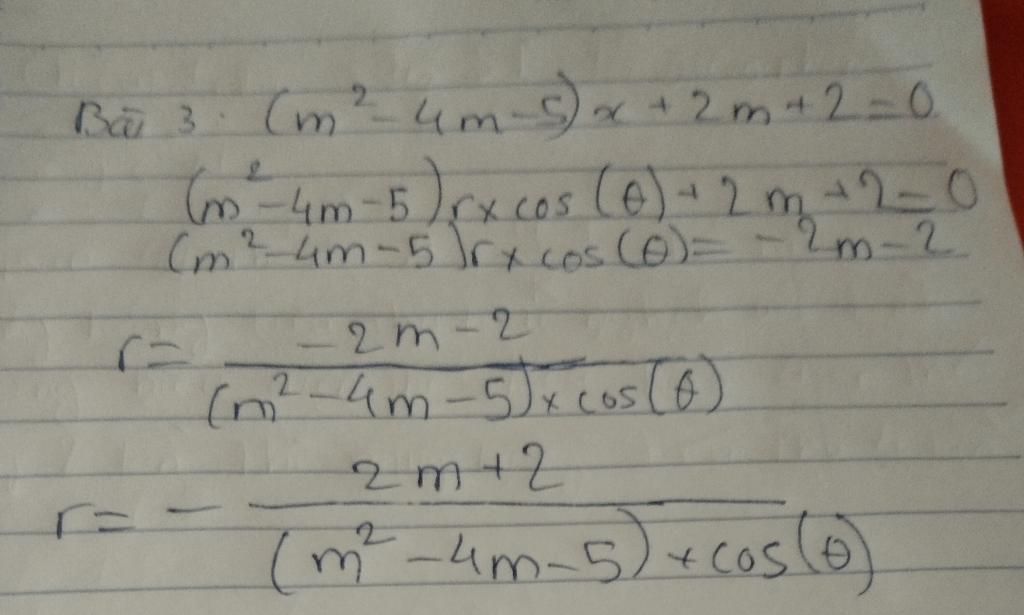 Bài 3. (m² - 4m - 5) x + 2m + 2 = 0
(m² - 4m - 5) r x cos (θ) + 2m + 2 = 0
(m² - 4m - 5) r x cos (θ) = - 2m - 2
r = \frac{- 2m - 2}{(m² - 4m - 5) x cos (θ)}
r = - \frac{2m + 2}{(m² - 4m - 5) x cos (θ)}